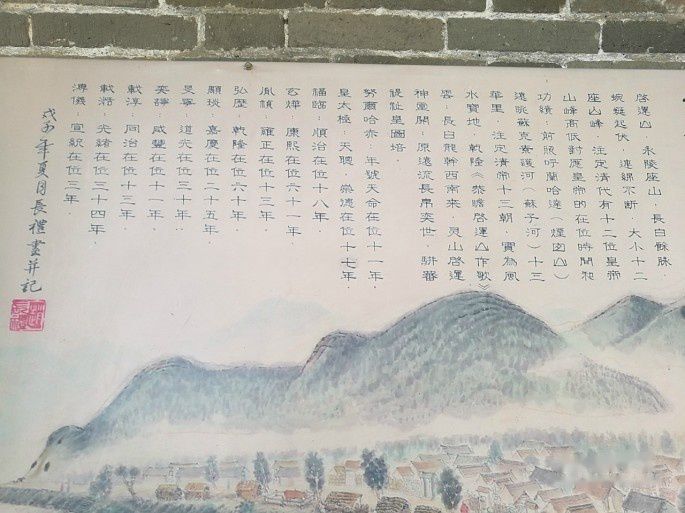 啓運山，永陵座山，長白餘脉，
蜿蜒起伏，連綿不斷，大小十二
座山峰，注定清代有十二位皇帝，
山峰高低對應皇帝的在位時間和
功績，前照呼蘭哈達（煙囱山）
遠眺蘇克素護河（蘇子河）十三
華里，注定清帝十三朝，實爲風
水寶地，乾隆《恭瞻啓運山作歌》
雲：長白龍幹西南來，灵山啓運
神堂開，原遠流長帛奕世，駢蕃
禔祉皇圖培，
努爾哈赤，年號天命在位十一年，
皇太極：天聰、崇德在位十七年，
福臨：順治在位十八年，
玄燁：康熙在位六十一年，
胤禎：雍正在位十三年，
弘歷：乾隆在位六十年，
顒琰：嘉慶在位二十五年，
旻寧：道光在位三十年，
奕詝：咸豐在位十一年，
載淳：同治在位十三年，
載湉：光緒在位三十四年，
溥儀：宣統在位三年，
戊子年夏月長禮畫并記